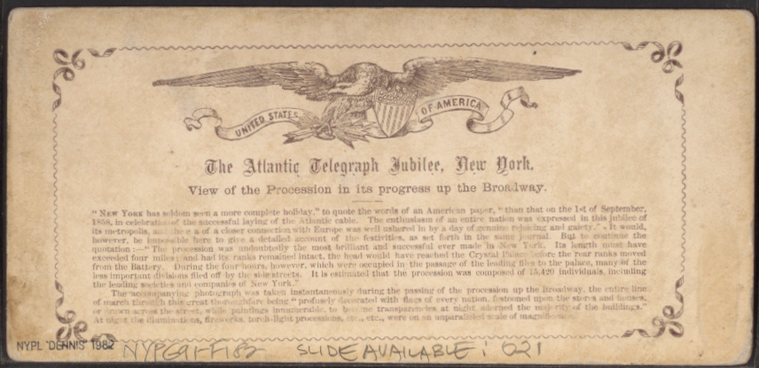 UNITED STATES OF AMERICA
The Atlantic Telegraph Jubilee, New York.
View of the Procession in its progress up the Broadway.
"NEW YORK has seldom seen a more complete holiday," to quote the words of an American paper, "than that on the 1st of September,
1858, in celebration of the successful laying of the Atlantic cable. The enthusiasm of an entire nation was expressed in this jubilee of
its metropolis, and the a of a closer connection with Europe was well ushered in by a day of genuine rejoicing and gaiety." It would,
however, be impossible here to give a detailed amount of the festivities, as set forth in the same journal. But to continue the
quotation:—"The procession was undoubtedly the most brilliant and successful ever made in New York. Its length must have
exceeded four miles; and had its ranks remained intact, the head would have reached the Crystal Palace before the rear ranks moved
from the Battery. During the four hours, however, which were occupied in the passage of the leading files to the palace, many of the
less important divisions filed off by the side streets. It is estimated that the procession was composed of 15,420 individuals, including
the leading societies and companies of New York."
The accompanying photograph was taken instantaneously during the passing of the procession up the Broadway, the entire line
of march through this great thoroughfare being "profusely decorated with flags of every nation, festooned upon the stores and houses,
or drawn across the street, while paintings innumerable, to become transparencies at night, adorned the majority of the buildings."
At night the illuminations, fireworks, torch-light processions, etc., etc., were on an unparalleled scale of magnificence.
NYPL DENNIS 1982 NYPG91-F182 SLIDE AVAILABLE: 021